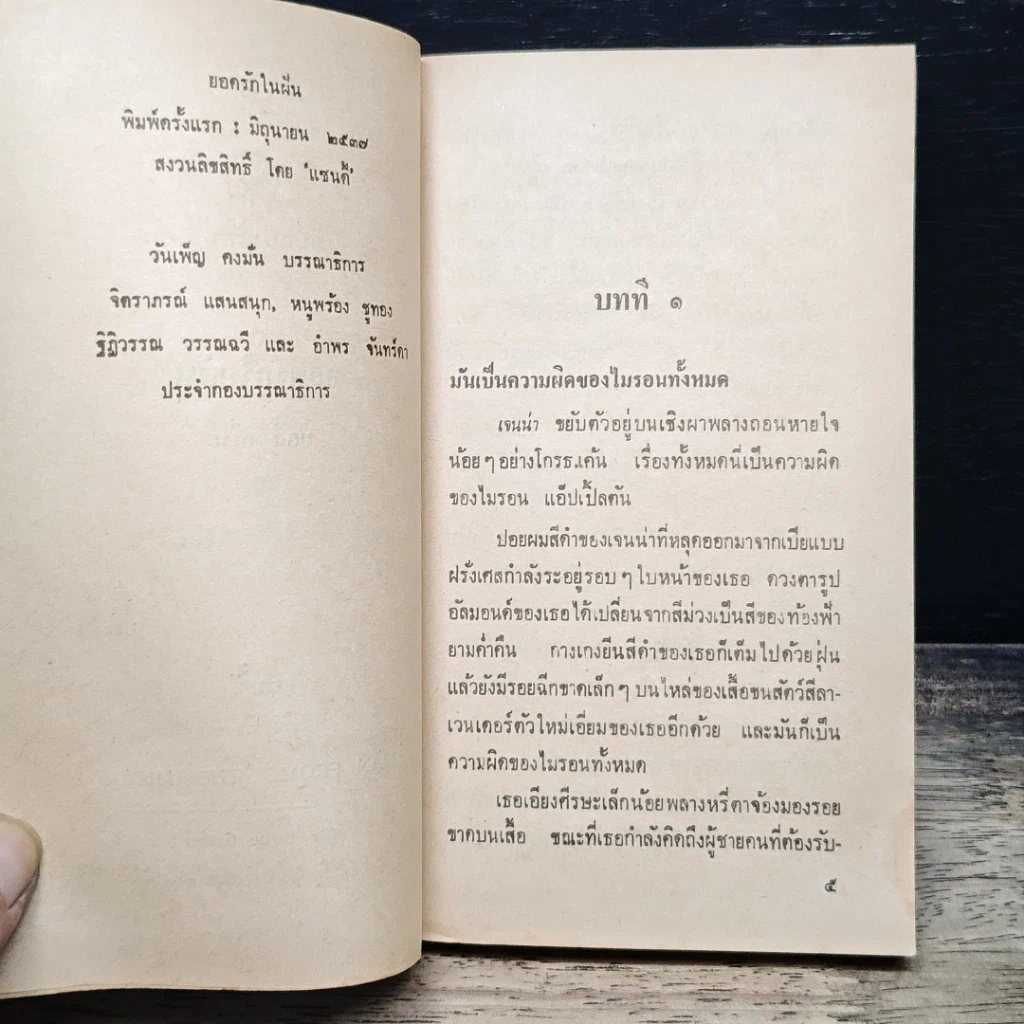 ยอดรักในฝัน
พิมพ์ครั้งแรก : มิถุนายน ๒๕๓๗
สงวนลิขสิทธิ์ โดย 'แซนดี้'
วันเพ็ญ คงมั่น บรรณาธิการ
จิตราภรณ์ แสนสนุก, หนูพร้อง ชูทอง
ฐิฏิวรรณ วรรณฉวี และ อำพร จันทร์ดา
ประจำกองบรรณาธิการ
บทที่ ๑
มันเป็นความผิดของไมรอนทั้งหมด
เจนน่า ขยับตัวอยู่บนเชิงผาพลางถอนหายใจ
น้อยๆอย่างโกรธแค้น เรื่องทั้งหมดนี่เป็นความผิด
ของไมรอน แอ็ปเปิ้ลตัน
ปอยผมสีดำของเจนน่าที่หลุดออกมาจากเปียแบบ
ฝรั่งเศสกำลังระอยู่รอบๆใบหน้าของเธอ ดวงตารูป
อัลมอนด์ของเธอได้เปลี่ยนจากสีม่วงเป็นสีของท้องฟ้า
ยามค่ำคืน กางเกงยีนสีดำของเธอก็เต็มไปด้วยฝุ่น
แล้วยังมีรอยฉีกขาดเล็กๆ บนไหล่ของเสื้อขนสัตว์สีลา-
เวนเดอร์ตัวใหม่เอี่ยมของเธออีกด้วย และมันก็เป็น
ความผิดของไมรอนทั้งหมด
เธอเอียงศีรษะเล็กน้อยพลางหรี่ตาจ้องมองรอย
ขาดบนเสื้อ ขณะที่เธอกำลังคิดถึงผู้ชายคนที่ต้องรับ-
๕